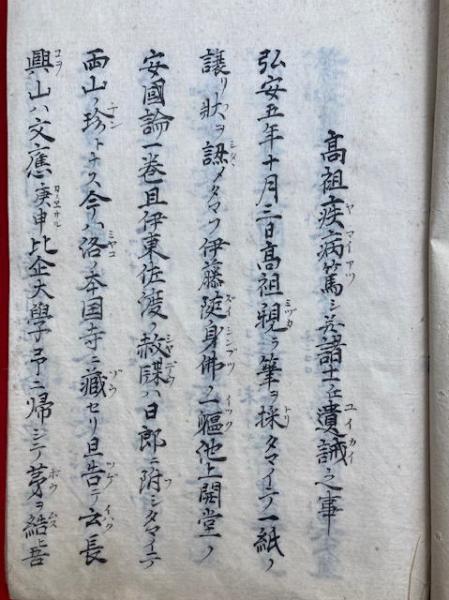 高祖疾病篤シ並諸士ニ遺誡之事
弘安五年十月三日高祖親ラ筆ヲ採タマイテ一紙ノ
譲リ状ヲ認メタマフ伊藤随身佛ノ一軀池上開堂ノ
安國論一巻且伊東佐渡ノ赦牒ハ日郎ニ附シタマイテ
両山ノ珍トナス今ハ洛ノ本国寺ニ藏セリ且告テ云長
興山ハ文應庚申比企大學予ニ帰シテ茅ヲ結吾